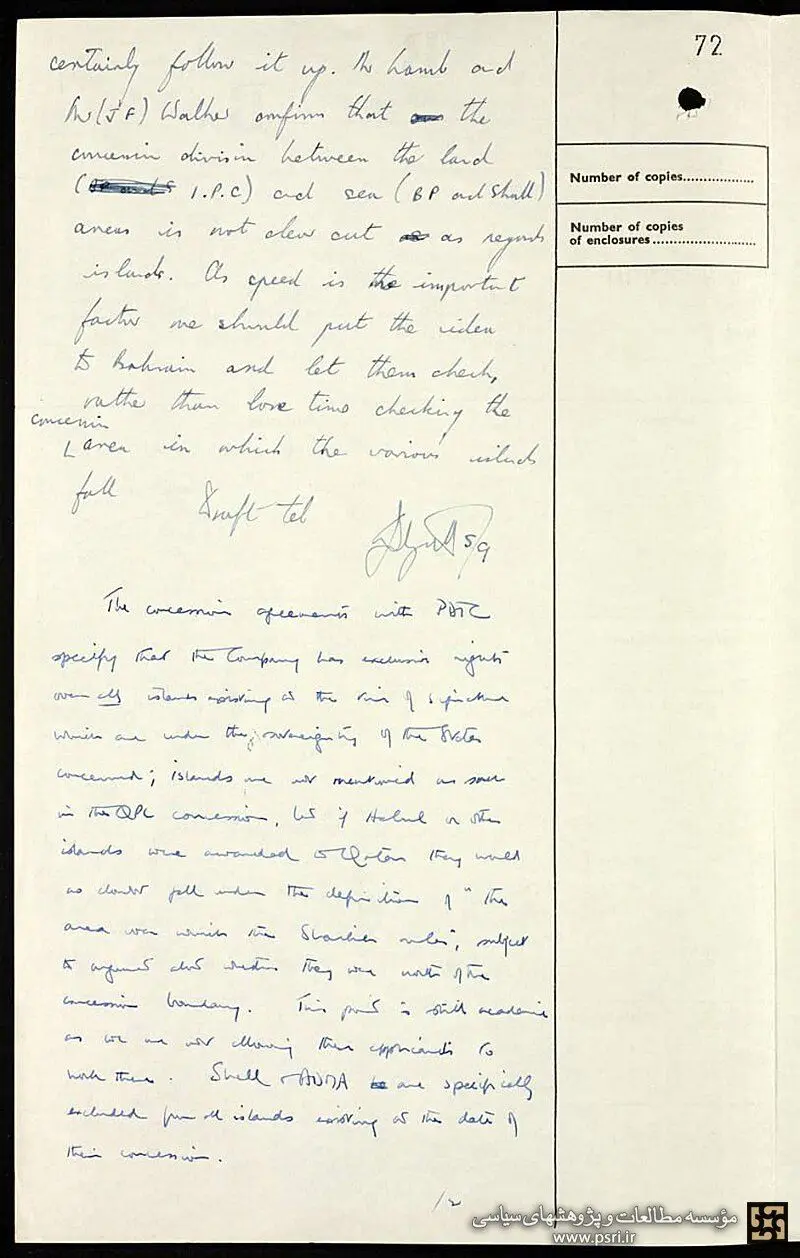 72
certainly follow it up. Mr Lamb and
Mr (J F) Walker confirm that the
concession division between the land
( I.P.C) and sea (BP and Shell)
areas is not clear cut as regards
islands. As speed is the important
factor we should put the idea
to Bahrain and let them check,
rather than lose time checking the
concession
area in which the various islands
fall
Draft tel
5/9
Number of copies
Number of copies
of enclosures
The concession agreements with PDTC
specify that the Company has exclusive rights
over all islands existing at the time of signature
which are under the sovereignty of the States
concerned; islands are not mentioned as such
in the QPC concession, but if Halul or other
islands were awarded to Qatar they would
no doubt fall under the definition of "the
area over which the Shaikh rules", subject
to argument about whether they were north of the
concession boundary. This point is still academic
as we are not allowing these applicants to
work there. Shell & ADMA are specifically
excluded from all islands existing at the date of
their concession.
/2
مؤسسه مطالعات و پژوهشهای سیاسی
www.psri.ir